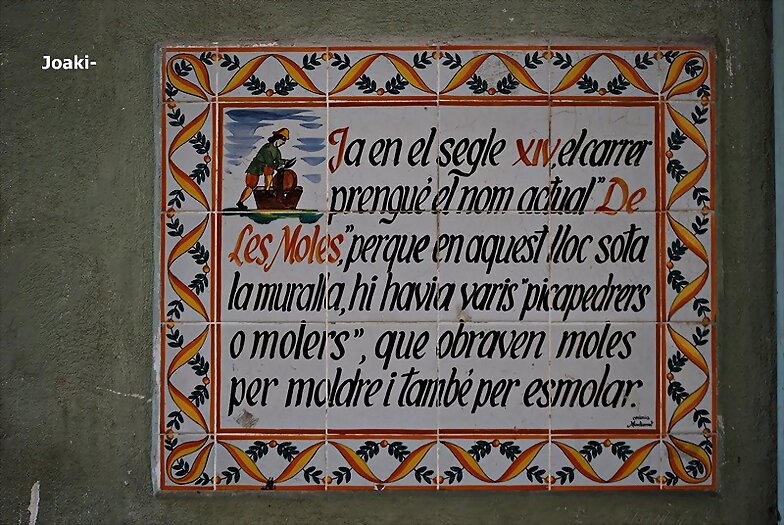 Joaki-
Ja en el segle XIV, el carrer
prengué el nom actual "De
Les Moles," perque en aquest lloc sota
la muralla, hi havia varis "picapedrers
o molers", que obraven moles
per moldre i també per esmolar.